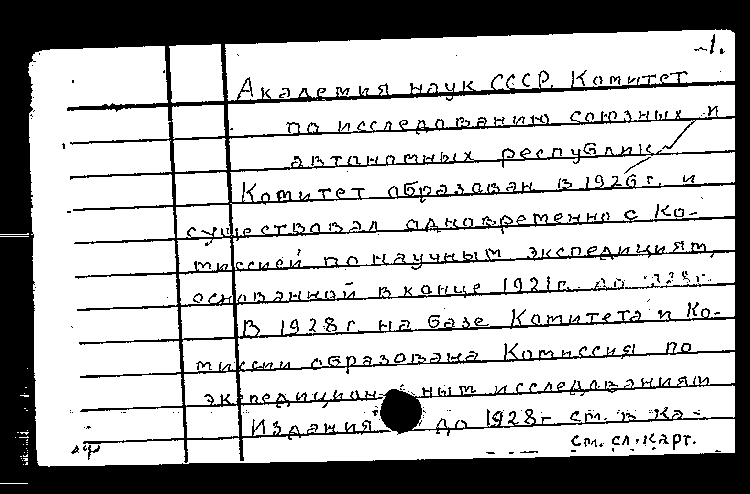 -1.
Академия наук СССР. Комитет
по исследованию союзных и
автономных республик
Комитет образован в 1926г. и
существовал одновременно с Ко-
миссией по научным экспедициям,
основанной в конце 1921г. до 1928г.
В 1928г на базе Комитета и Ко-
миссии образована Комиссия по
экспедицион- ным исследованиям
Издания до 1928г см. в Ка-
см. сл. карт.